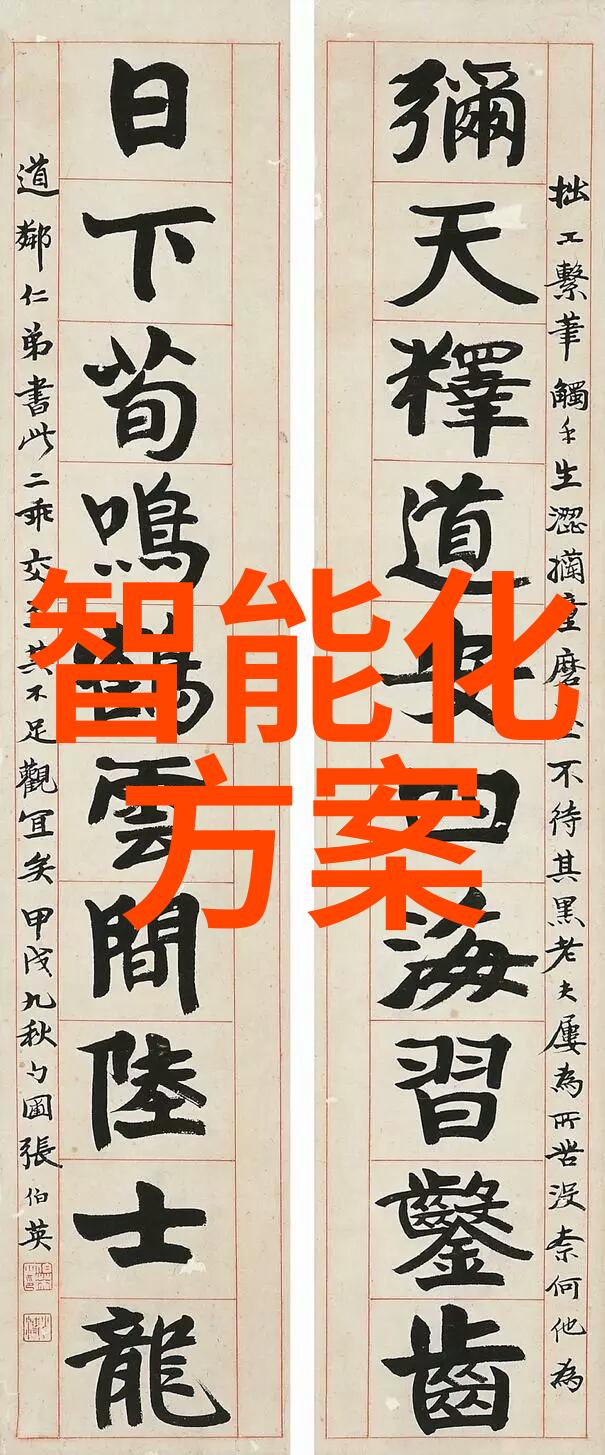 智能化
方案
拙工繫筆觸手生澀童磨不待其黑老夫屢為所苦沒奈何他為
彌天釋道安四海習鑿齒
日下荀鳴鶴雲間陸士龍
道鄰仁弟書此二乖交其不足觀宜矣甲戌九秋勺圃張伯英